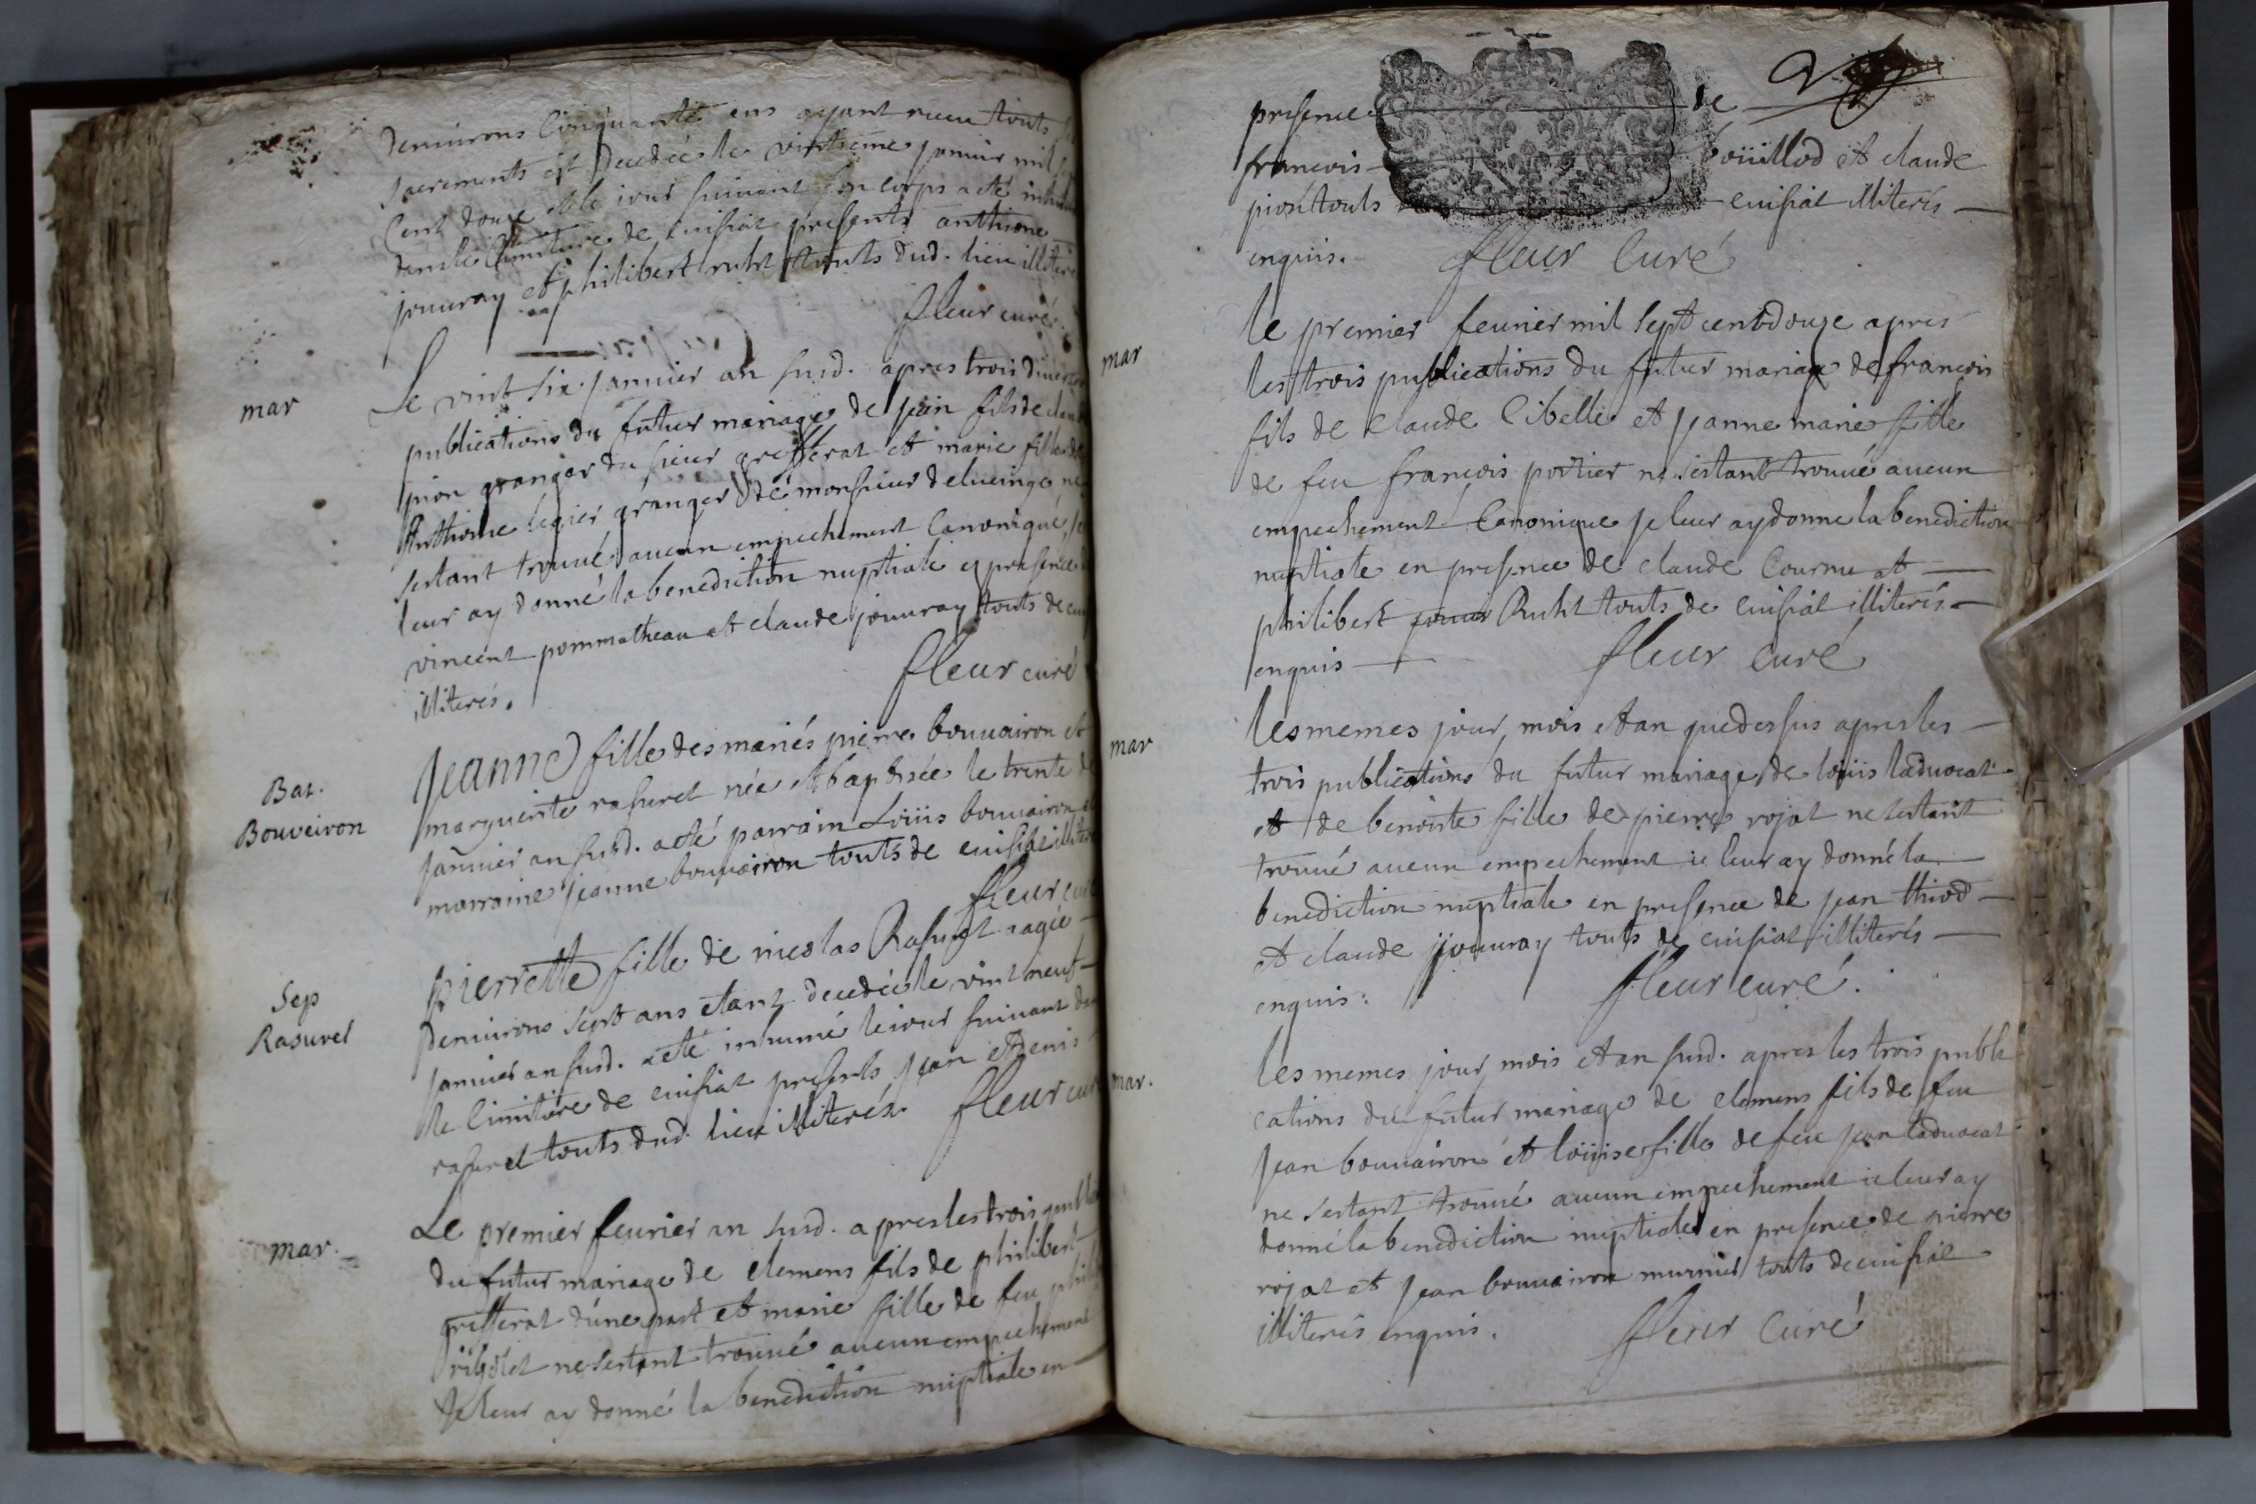 denuirons Cinquante ans ayant receu touts
sacrements est Decedée le vintieme januier mil
Cent douze et le iour suiuant son corps a eté
dans le Cimitiere de cuisiat presents anthione
jouuray et philibert ruht touts dud. lieu
fleur curé
mar
Le vint six januier an susd. apres trois
publications du futur mariage de jean fils de
pion granger du sieur grefferat et marie fille
Anthione legier granger de monsieur delueinge
sestant trouué aucun empechement Canonique
leur ay donné la benediction nuptiale en presence
vincent pommatheau et claude jouuray touts de
illiterés.
fleur curé
Bat.
Bouveiron
Jeanne fille des mariés pierre bouuairon et
marguerite rasurel née et baptisée le trente
januier an susd. a eté parrain Loüis bouuairon
marraine jeanne bouuairon touts de cuisiat
fleur
Sep
Rasurel
pierrette fille de nicolas Rasurel agée
denuirons sept ans etant decedée le vint neuf
januier an susd. a eté inhumé le iour suiuant
le Cimitiere de cuisiat presents jean et denis
rasurel touts dud. lieu illiterés. fleur
mar.
Le premier feurier an susd. apres les trois
du futur mariage de clemens fils de philibert
grefferat dune part et marie fille de feu
ribolet ne sestant trouué aucun empechement
Je leur ay donné la benediction nuptiale en
presence de
francois boüillod et claude
pion touts cuisiat illiterés
enquis.
fleur Curé
mar
le premier feurier mil sept cent douze apres
les trois publications du futur mariage de francois
fils de claude Cibelle et janne marie fille
de feu francois portier ne sestant trouué aucun
empechement Canonique je leur ay donne la benediction
nuptiale en presence de claude Cournu et
philibert Ruht touts de Cuisiat illiterés
enquis
fleur curé
mar
les memes jour, mois et an que dessus apres les
trois publications du futur mariage de loüis laduocat
et de benoite fille de pierre rojat ne sestant
trouué aucun empechement ie leur ay donné la
benediction nuptiale en presence de jean thiod
et claude jouuray touts de cuisiat illiterés
enquis.
fleur curé.
mar.
les memes jour, mois et an susd. apres les trois publi
cations du futur mariage de clemens fils de feu
jean bouuairon et loüise fille de feu jean laduocat
ne sestant trouué aucun empechement ie leur ay
donné la benediction nuptiale en presence de pierre
rojat et jean bouuairon murnier touts de cuisiat
illiterés enquis.
fleur Curé